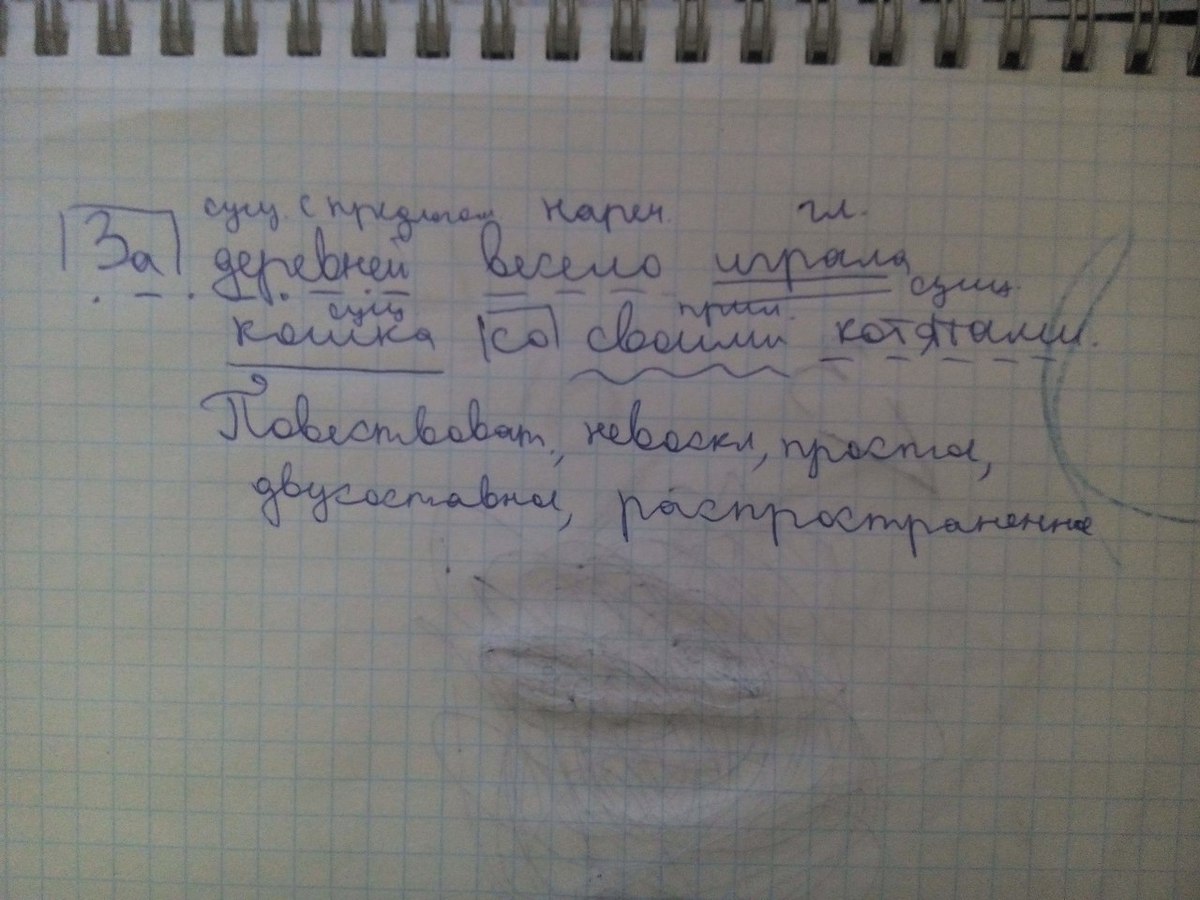 сущ. с предлогом нареч. гл.
За деревней весело играла
сущ прил. сущ.
кошка со своими котятами.
Повествоват., невоскл, проста,
двусоставна, распространенна